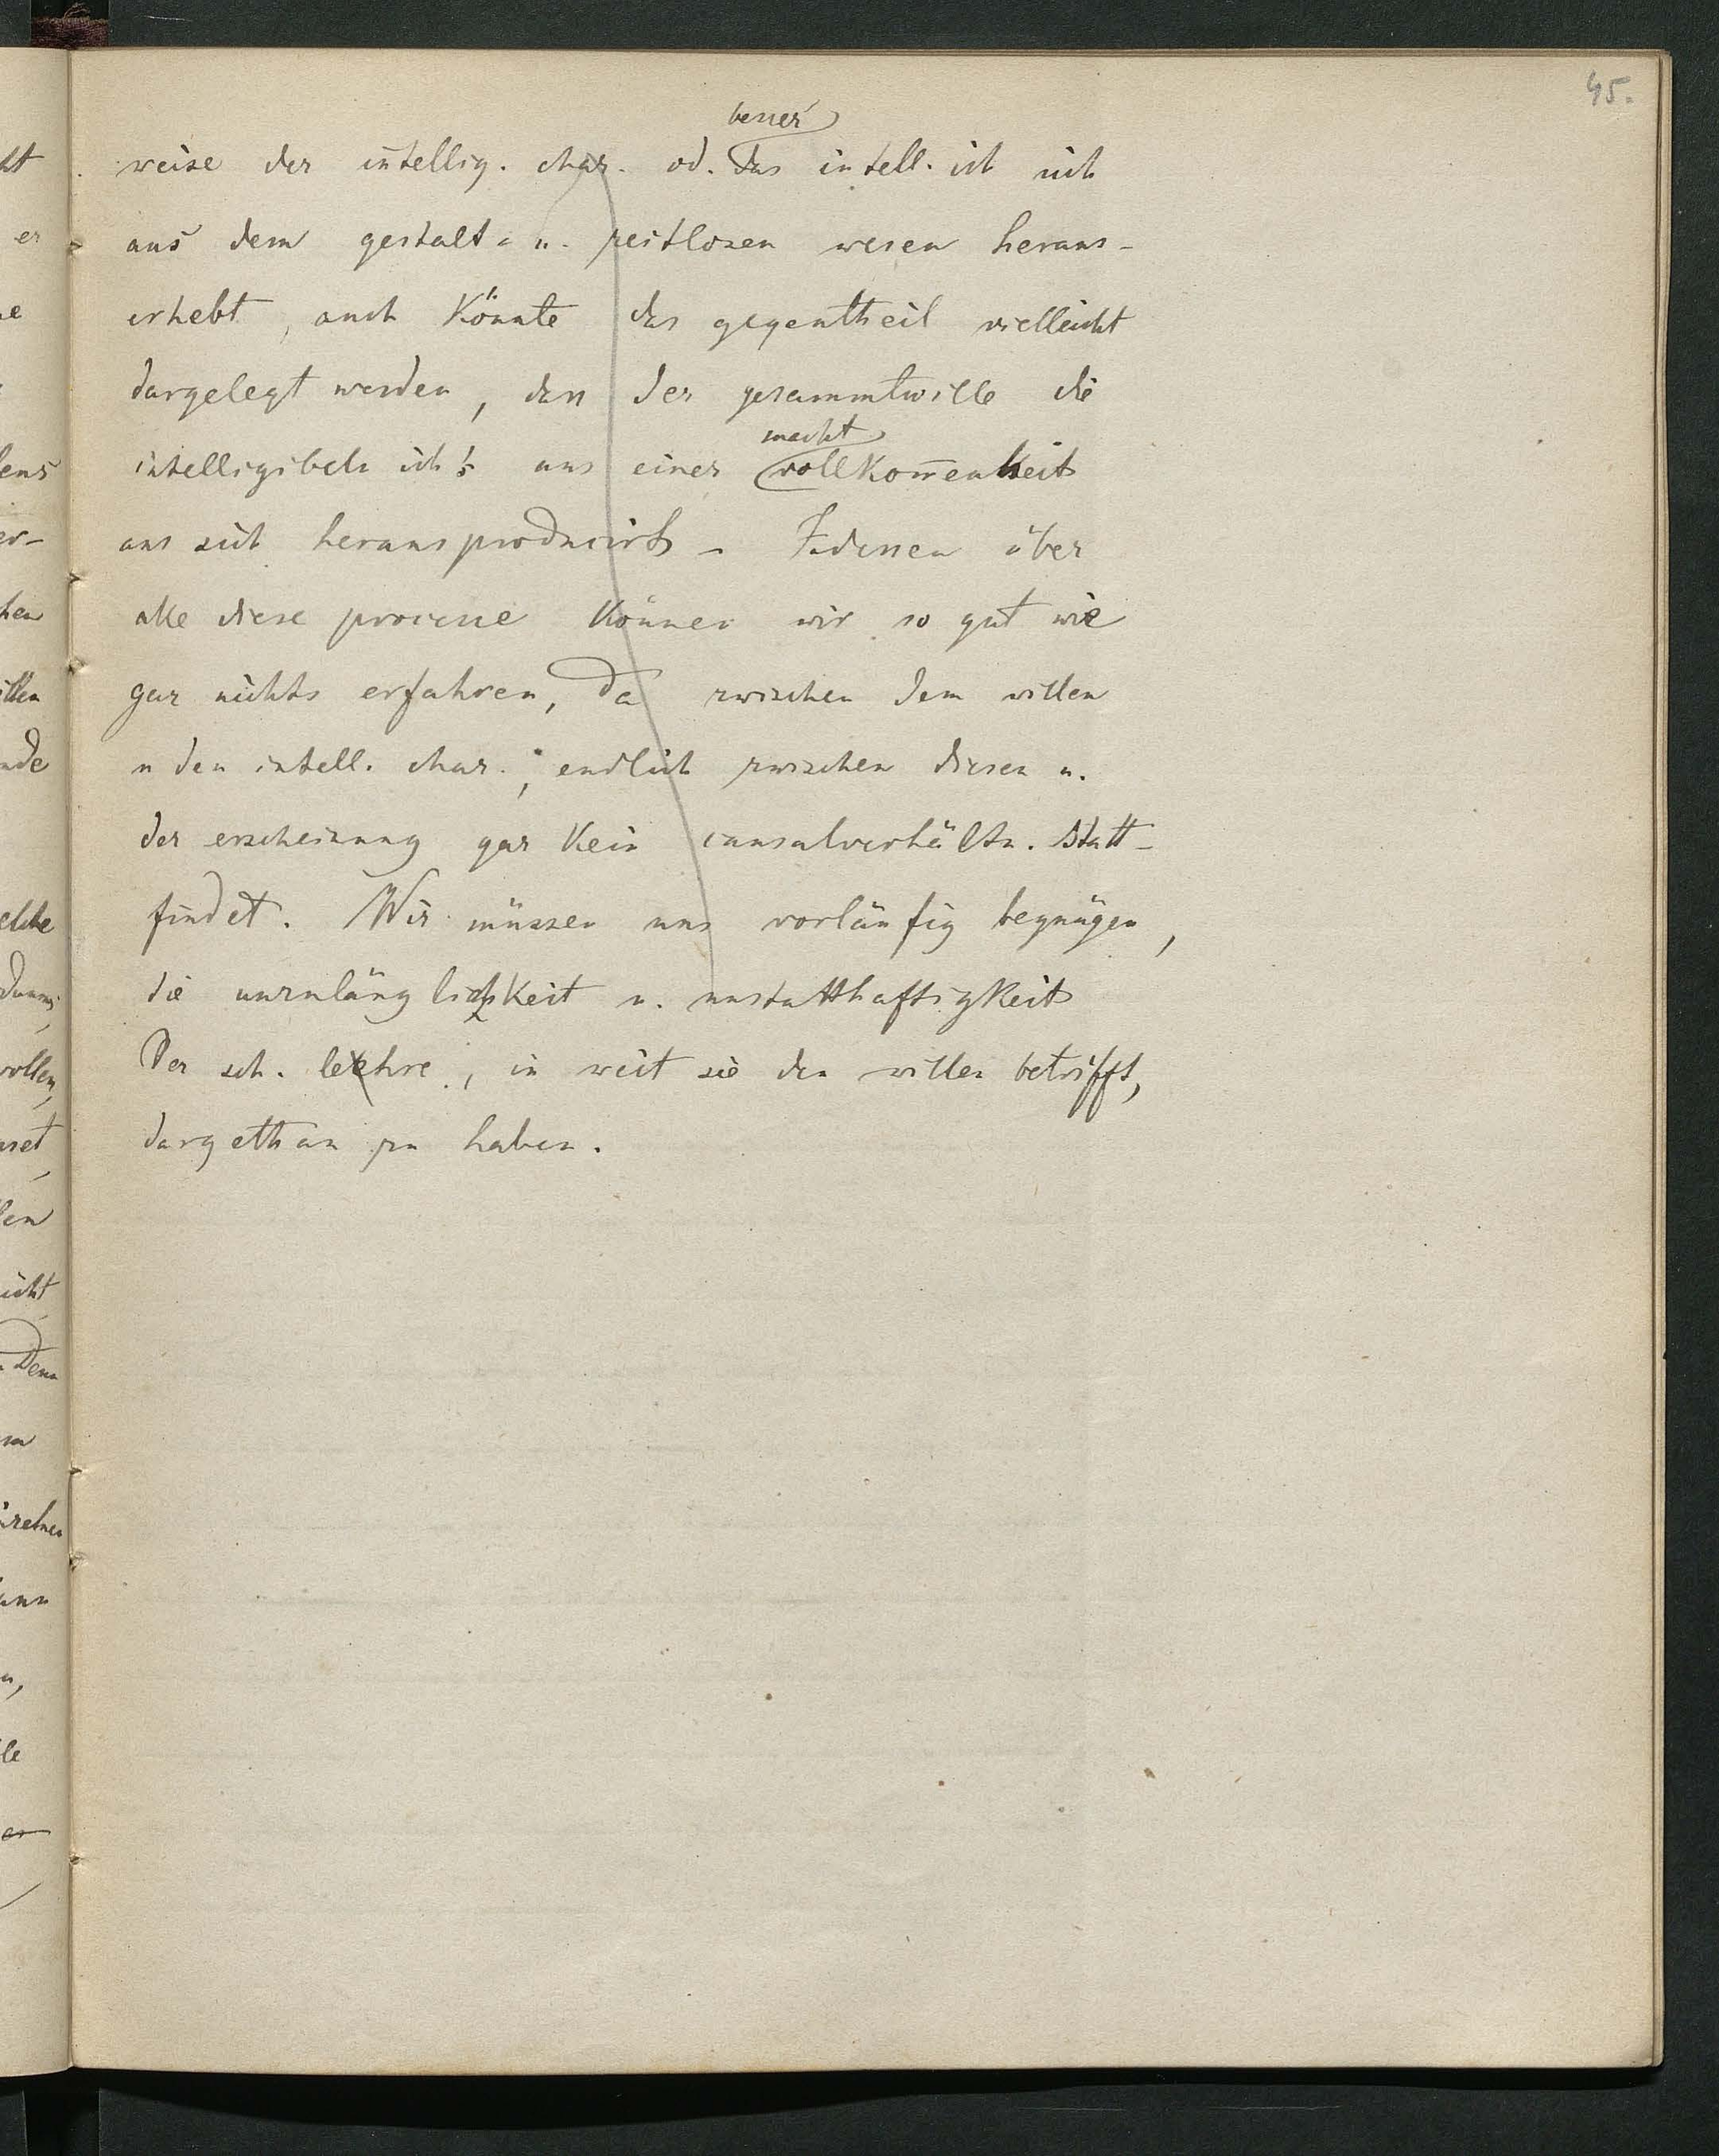 45.
besser
weise der intellig. char. od. das intell. ich sich
aus dem gestalt- u. zeitlosen wesen heraus-
erhebt, auch könnte das gegentheil vielleicht
dargelegt werden, dass der gesammtwille die
macht
intelligibeln ich's aus einer vollkom̄enheit
aus sich herausproducirt – Indessen über
alle diese processe können wir so gut wie
gar nichts erfahren, da zwischen dem willen
u den intell. char.; endlich zwischen diesen u.
der erscheinung gar kein causalverhältn. statt-
findet. Wir müssen uns vorläufig begnügen,
die unzulänglichkeit u. unstatthaftigkeit
Der sch. lehre, in weit sie den willen betrifft,
dargethan zu haben.